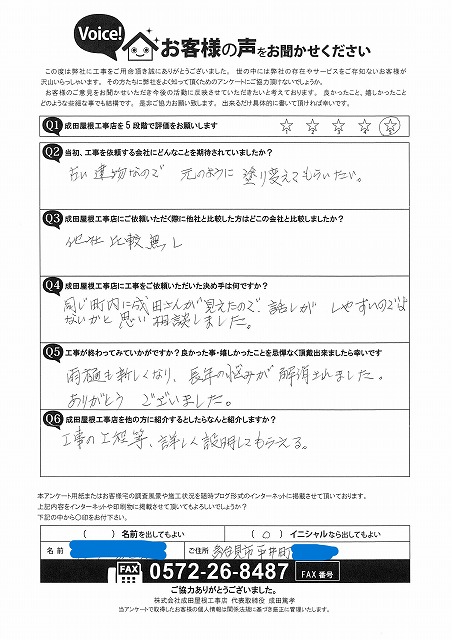 Voice!
お客様の声をお聞かせください
この度は弊社に工事をご用命頂き誠にありがとうございました。 世の中には弊社の存在やサービスをご存知ないお客様が
沢山いらっしゃいます。 その方たちに弊社をよく知って頂くためのアンケートにご協力頂けないでしょうか。
お客様のご意見をお聞かせいただき今後の活動に反映させていただきたいと考えております。 良かったこと、嬉しかったこと
どのような些細な事でも結構です。 是非ご協力お願い致します。 出来るだけ具体的に書いて頂ければ幸いです。
Q1 成田屋根工事店を5段階で評価をお願いします
1 2 3 4 5
Q2 当初、工事を依頼する会社にどんなことを期待されていましたか?
古い建物なので 元のように塗り変えてもらいたい。
Q3 成田屋根工事店にご依頼いただく際に他社と比較した方はどこの会社と比較しましたか?
他社比較無し
Q4 成田屋根工事店に工事をご依頼いただいた決め手は何ですか?
同じ町内に成田さんが見えたので、話しが しやすいのでは
ないかと思い相談しました。
Q5 工事が終わってみていかがですか?良かった事・嬉しかったことを忌憚なく頂戴出来ましたら幸いです
雨樋も新しくなり、長年の悩みが 解消されました。
ありがとう ございました。
Q6 成田屋根工事店を他の方に紹介するとしたらなんと紹介しますか?
工事の工程等、詳しく説明してもらえる。
本アンケート用紙またはお客様宅の調査風景や施工状況を随時ブログ形式のインターネットに掲載させて頂いております。
上記内容をインターネットや印刷物に掲載させて頂いてもよろしいでしょうか?
下記の中から〇印をお付け下さい。
( ) 名前を出してもよい ( 〇 ) イニシャルなら出してもよい
名 前 ご住所 多治見市平井町
FAX 0572-26-8487 FAX 番号
ご協力ありがとうございました。
株式会社成田屋根工事店 代表取締役 成田篤孝
当アンケートで取得したお客様の個人情報は関係法規に基づき厳正に管理いたします。